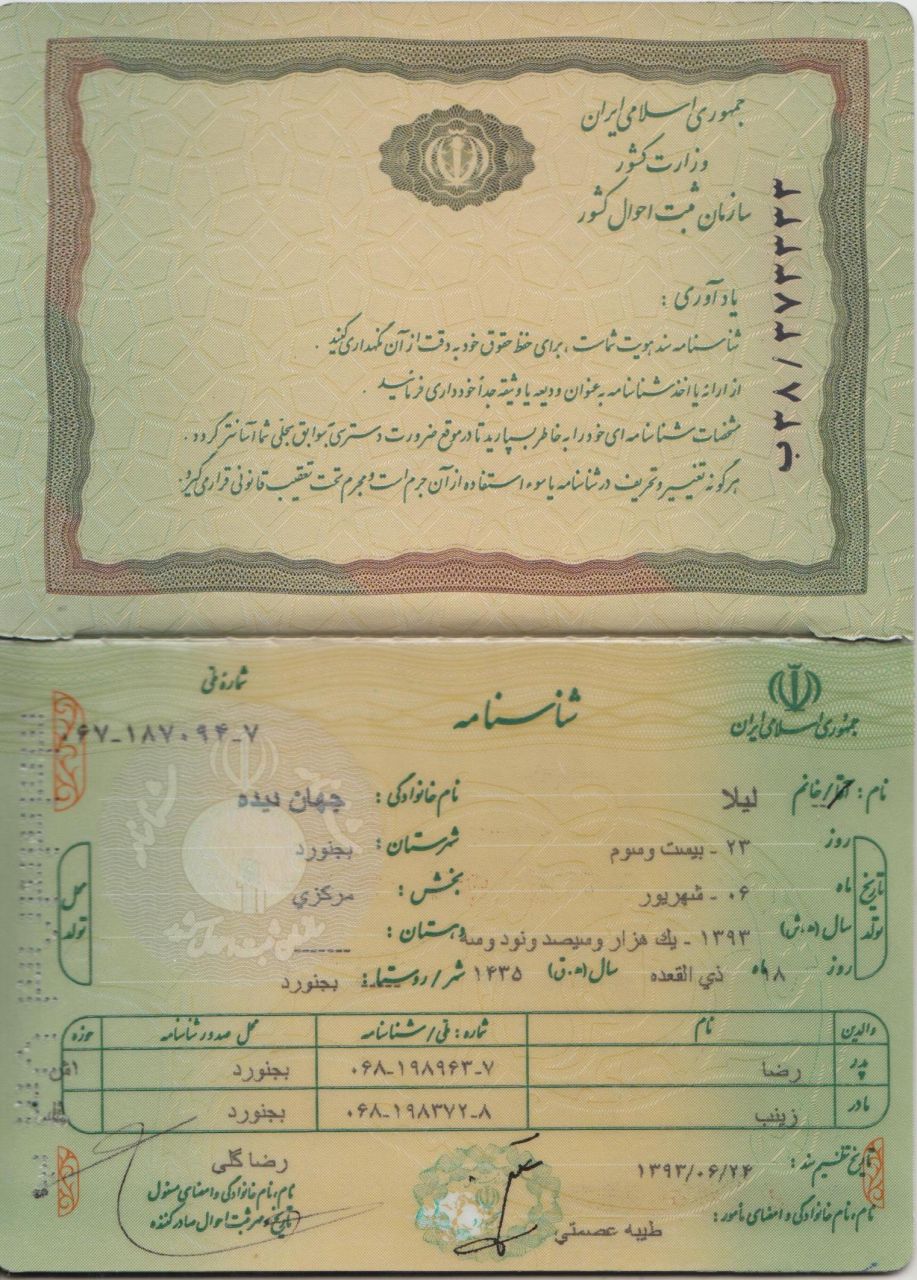 جمهوری اسلامی ایران
وزارت کشور
سازمان ثبت احوال کشور
ب۲۸/۲۷۳۳۳۳
یادآوری :
شناسنامه سند هویت شماست ، برای حفظ حقوق خود به دقت از آن نگهداری کنید .
از ارائه یا اخذ شناسنامه به عنوان ودیعه یا وثیقه جداً خودداری فرمائید .
مشخصات شناسنامه ای خود را به خاطر بسپارید تا در موقع ضرورت دسترسی به سوابق سجلی شما آسانتر گردد .
هرگونه تغییر و تحریف در شناسنامه یا سوء استفاده از آن جرم است و مجرم تحت تعقیب قانونی قرار می گیرد .
جمهوری اسلامی ایران
شناسنامه
شماره ملی
۰۶۷-۱۸۷۰۹۴-۷
نام : آقا/خانم لیلا نام خانوادگی : جهان دیده
تاریخ تولد
روز ۲۳ - بیست وسوم
ماه ۰۶ - شهریور
سال (ه.ش) ۱۳۹۳ - یك هزار وسیصد ونود وسه
روز ۱۸ ماه ذي القعده سال (ه.ق) ۱۴۳۵
محل تولد
شهرستان : بجنورد
بخش : مرکزي
دهستان : ------
شهر/روستا : بجنورد
والدین نام شماره : ملی/شناسنامه محل صدور شناسنامه حوزه
پدر رضا ۰۶۸-۱۹۸۹۶۳-۷ بجنورد
مادر زینب ۰۶۸-۱۹۸۳۷۲-۸ بجنورد
تاریخ تنظیم سند : ۱۳۹۳/۰۶/۲۴
نام ، نام خانوادگی و امضای مأمور : طیبه عصمتي
رضا گلی
نام ، نام خانوادگی و امضای مسئول
و مهر ثبت احوال صادر کننده